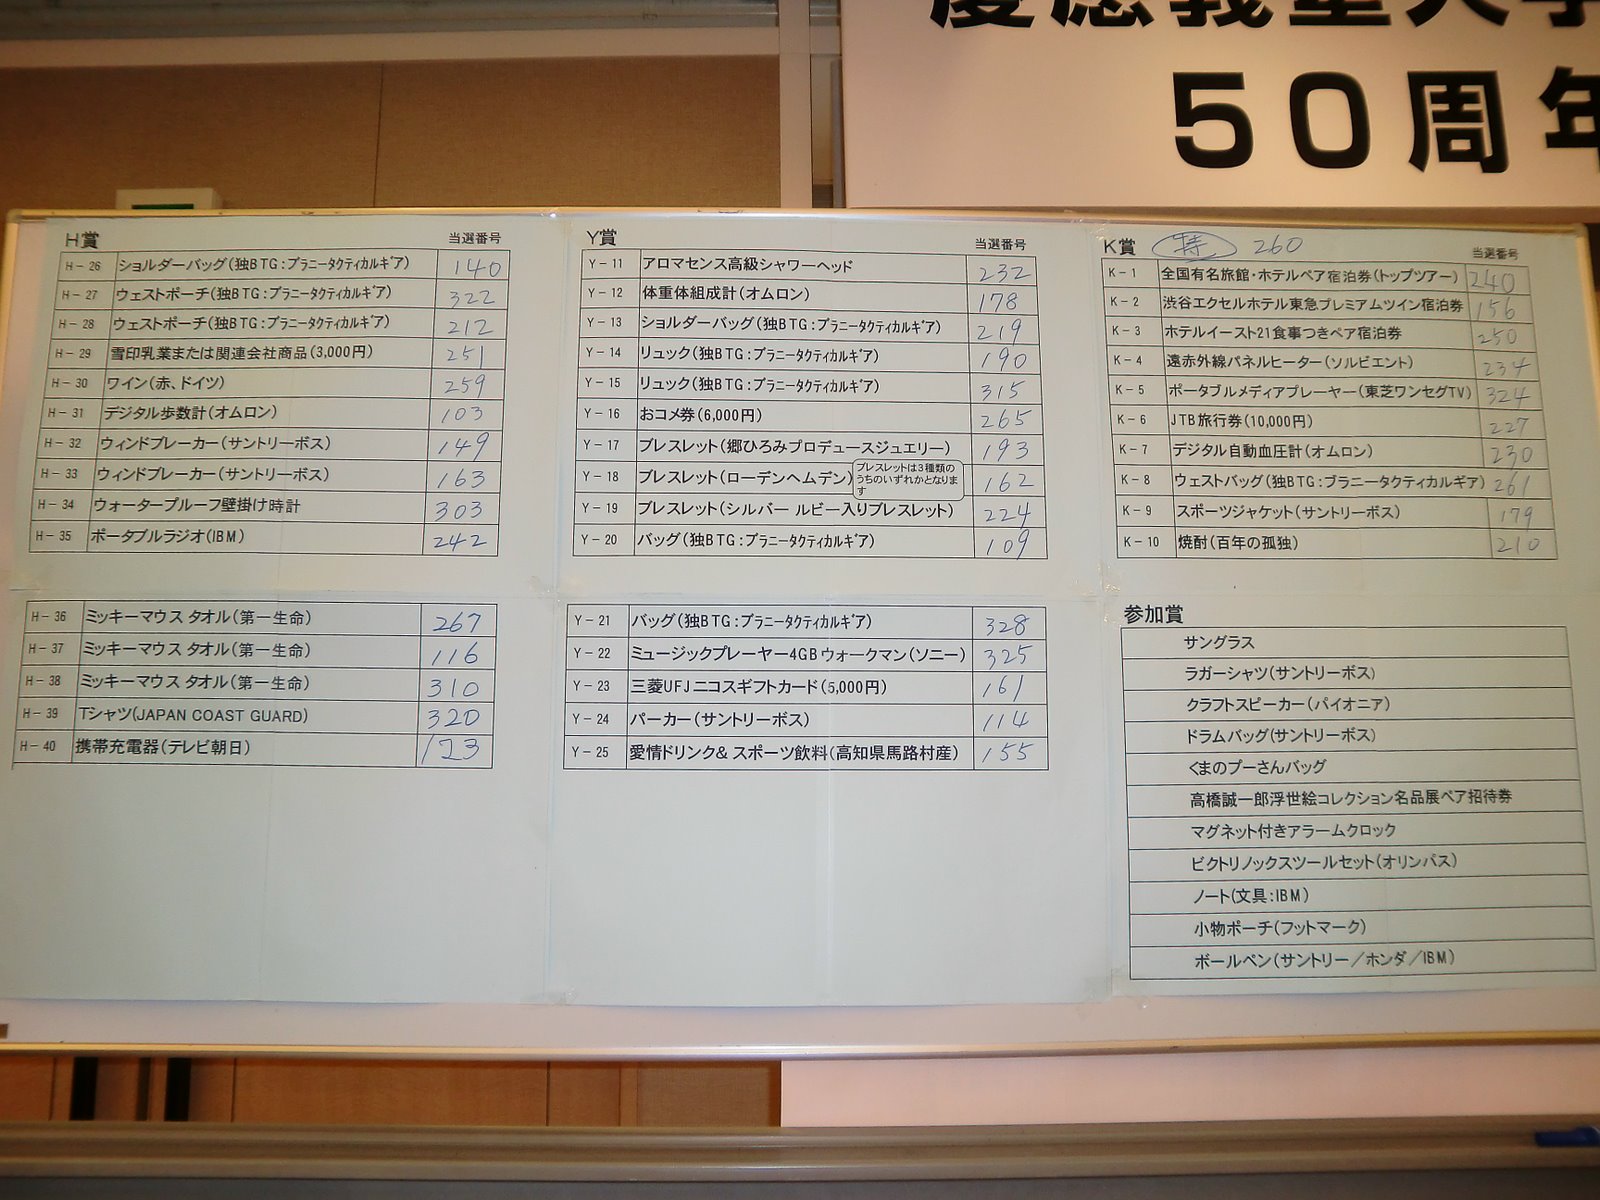 50周年
H賞 当選番号
H-26 ショルダーバッグ(独BTG:ブラニータクティカルギア) 140
H-27 ウェストポーチ(独BTG:ブラニータクティカルギア) 322
H-28 ウェストポーチ(独BTG:ブラニータクティカルギア) 212
H-29 雪印乳業または関連会社商品(3,000円) 251
H-30 ワイン(赤、ドイツ) 259
H-31 デジタル歩数計(オムロン) 103
H-32 ウィンドブレーカー(サントリーボス) 149
H-33 ウィンドブレーカー(サントリーボス) 163
H-34 ウォータープルーフ壁掛け時計 303
H-35 ポータブルラジオ(IBM) 242
H-36 ミッキーマウス タオル(第一生命) 267
H-37 ミッキーマウス タオル(第一生命) 116
H-38 ミッキーマウス タオル(第一生命) 310
H-39 Tシャツ(JAPAN COAST GUARD) 320
H-40 携帯充電器(テレビ朝日) 123
Y賞 当選番号
Y-11 アロマセンス高級シャワーヘッド 232
Y-12 体重体組成計(オムロン) 178
Y-13 ショルダーバッグ(独BTG:ブラニータクティカルギア) 219
Y-14 リュック(独BTG:ブラニータクティカルギア) 190
Y-15 リュック(独BTG:ブラニータクティカルギア) 315
Y-16 おコメ券(6,000円) 265
Y-17 ブレスレット(郷ひろみプロデュースジュエリー) 193
Y-18 ブレスレット(ローデンヘムデン) 162
ブレスレットは3種類の
うちのいずれかとなりま
す
Y-19 ブレスレット(シルバー ルビー入りブレスレット) 224
Y-20 バッグ(独BTG:ブラニータクティカルギア) 109
Y-21 バッグ(独BTG:ブラニータクティカルギア) 328
Y-22 ミュージックプレーヤー4GBウォークマン(ソニー) 325
Y-23 三菱UFJニコスギフトカード(5,000円) 161
Y-24 パーカー(サントリーボス) 114
Y-25 愛情ドリンク& スポーツ飲料(高知県馬路村産) 155
K賞 特 260 当選番号
K-1 全国有名旅館・ホテルペア宿泊券(トップツアー) 240
K-2 渋谷エクセルホテル東急プレミアムツイン宿泊券 156
K-3 ホテルイースト21食事つきペア宿泊券 250
K-4 遠赤外線パネルヒーター(ソルビエント) 234
K-5 ポータブルメディアプレーヤー(東芝ワンセグTV) 324
K-6 JTB旅行券(10,000円) 227
K-7 デジタル自動血圧計(オムロン) 230
K-8 ウェストバッグ(独BTG:ブラニータクティカルギア) 261
K-9 スポーツジャケット(サントリーボス) 179
K-10 焼酎(百年の孤独) 210
参加賞
サングラス
ラガーシャツ(サントリーボス)
クラフトスピーカー(パイオニア)
ドラムバッグ(サントリーボス)
くまのプーさんバッグ
高橋誠一郎浮世絵コレクション名品展ペア招待券
マグネット付きアラームクロック
ビクトリノックスツールセット(オリンパス)
ノート(文具:IBM)
小物ポーチ(フットマーク)
ボールペン(サントリー/ホンダ/IBM)